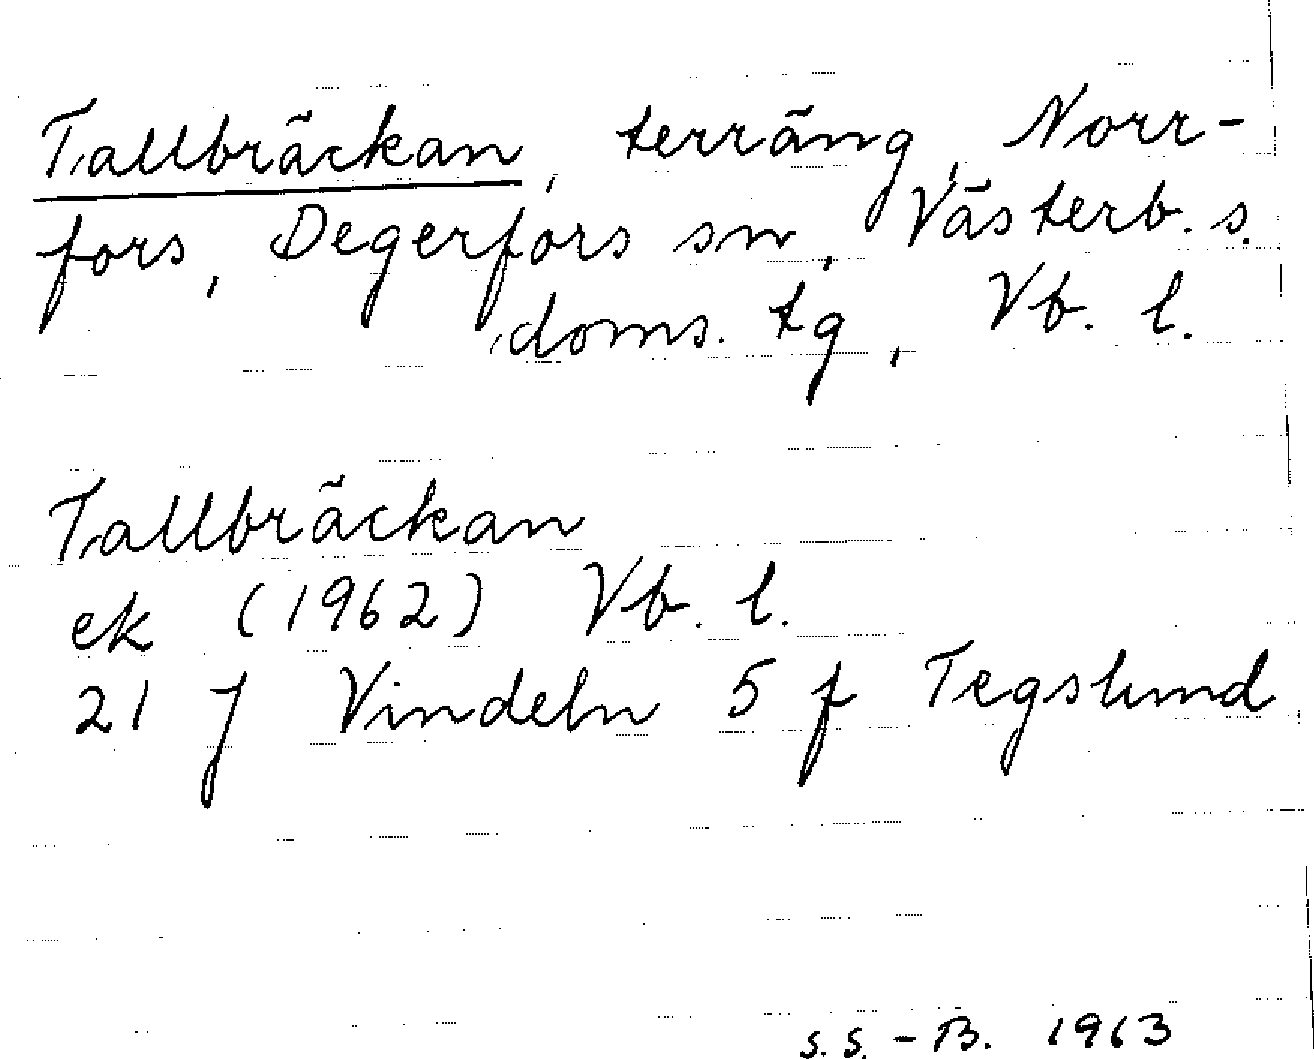 Tallbräckan, terräng, Norr-
fors, Degerfors sn, Västerb. s.
doms. tg, Vb. l.
Tallbräckan
ek (1962) Vb. l.
21 J Vindeln 5 f Tegslund
S. S. - B. 1963